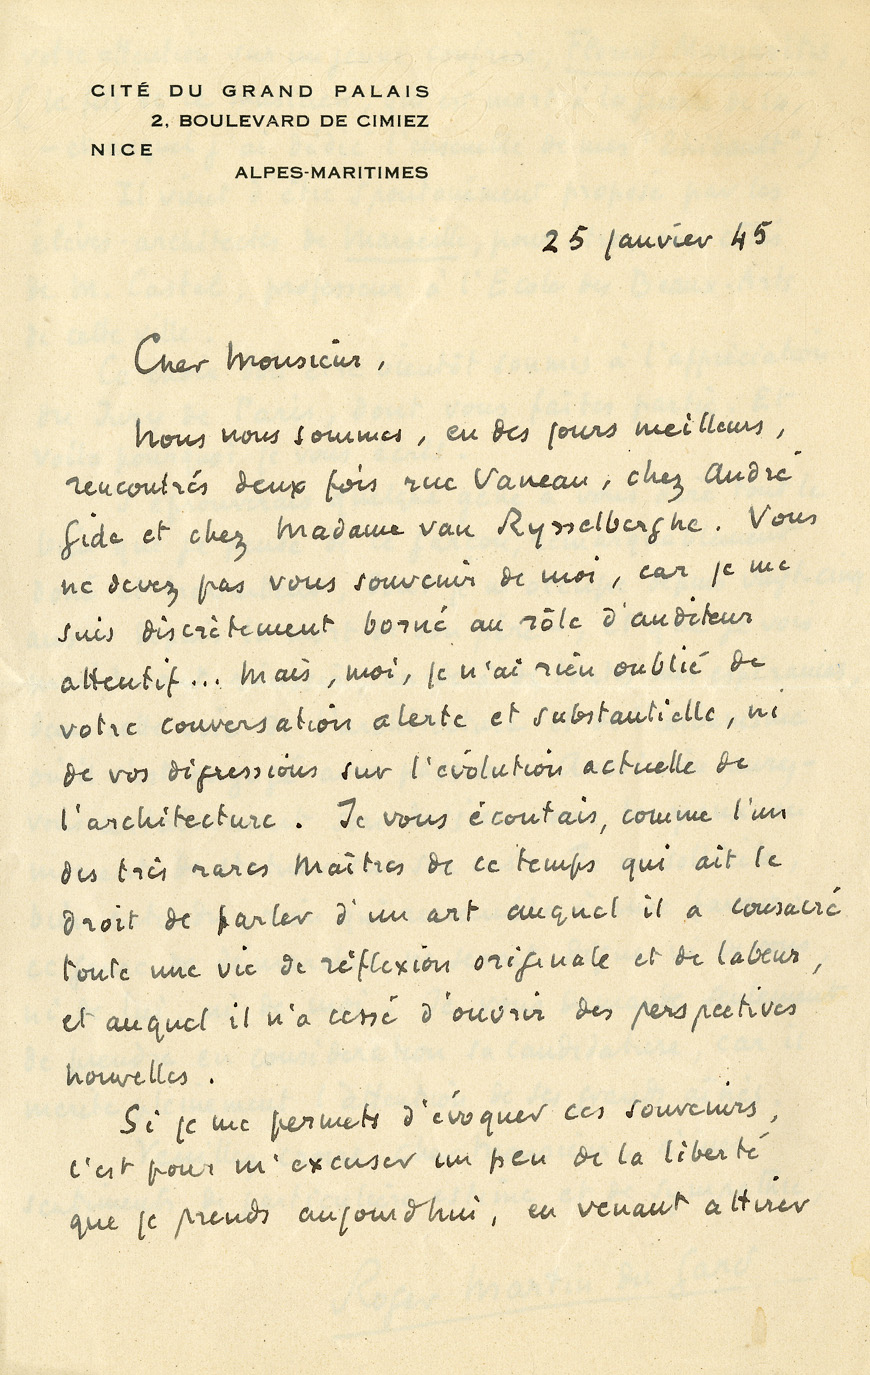 CITÉ DU GRAND PALAIS
2, BOULEVARD DE CIMIEZ
NICE
ALPES-MARITIMES
25 janvier 45
Cher Monsieur,
Nous nous sommes, en des jours meilleurs,
rencontrés deux fois rue Vaneau, chez André
Gide et chez Madame van Rysselberghe. Vous
ne devez pas vous souvenir de moi, car je me
suis discrètement borné au rôle d'auditeur
attentif... Mais, moi, je n'ai rien oublié de
votre conversation alerte et substantielle, ni
de vos digressions sur l'évolution actuelle de
l'architecture. Je vous écoutais, comme l'un
des très rares Maîtres de ce temps qui ait le
droit de parler d'un art auquel il a consacré
toute une vie de réflexion originale et de labeur,
et auquel il n'a cessé d'ouvrir des perspectives
nouvelles.
Si je me permets d'évoquer ces souvenirs,
c'est pour m'excuser un peu de la liberté
que je prends aujourd'hui, en venant attirer